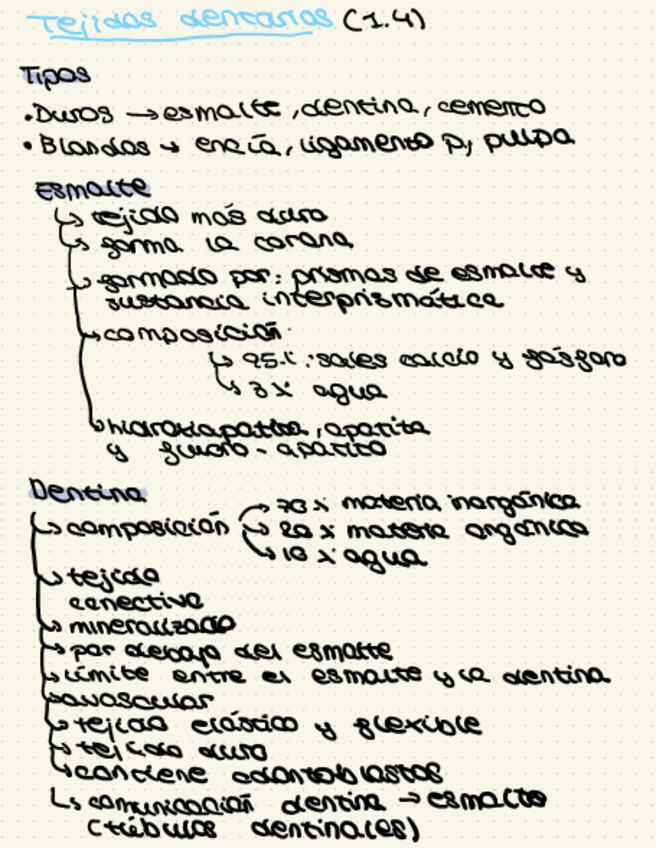 Tejidos dentarios (1.4)
Tipos
• Duros → esmalte, dentina, cemento
• Blandos → encía, ligamento p, pulpa
Esmalte
↳ tejido más duro
↳ forma la corona
↳ formado por: prismas de esmalte y
sustancia interprismática
↳ composición:
↳ 95%: sales calcio y fósforo
↳ 3% agua
↳ hidroxiapatita, apatita
y fluoro-apatito
Dentina
→ 70% materia inorgánica
↳ composición → 20% materia orgánica
↳ 10% agua
↳ tejido
conectivo
↳ mineralizado
↳ por debajo del esmalte
↳ límite entre el esmalte y la dentina
↳ avascular
↳ tejido elástico y flexible
↳ tejido duro
↳ contiene odontoblastos
↳ comunicación dentina → esmalte
(túbulos dentinales)